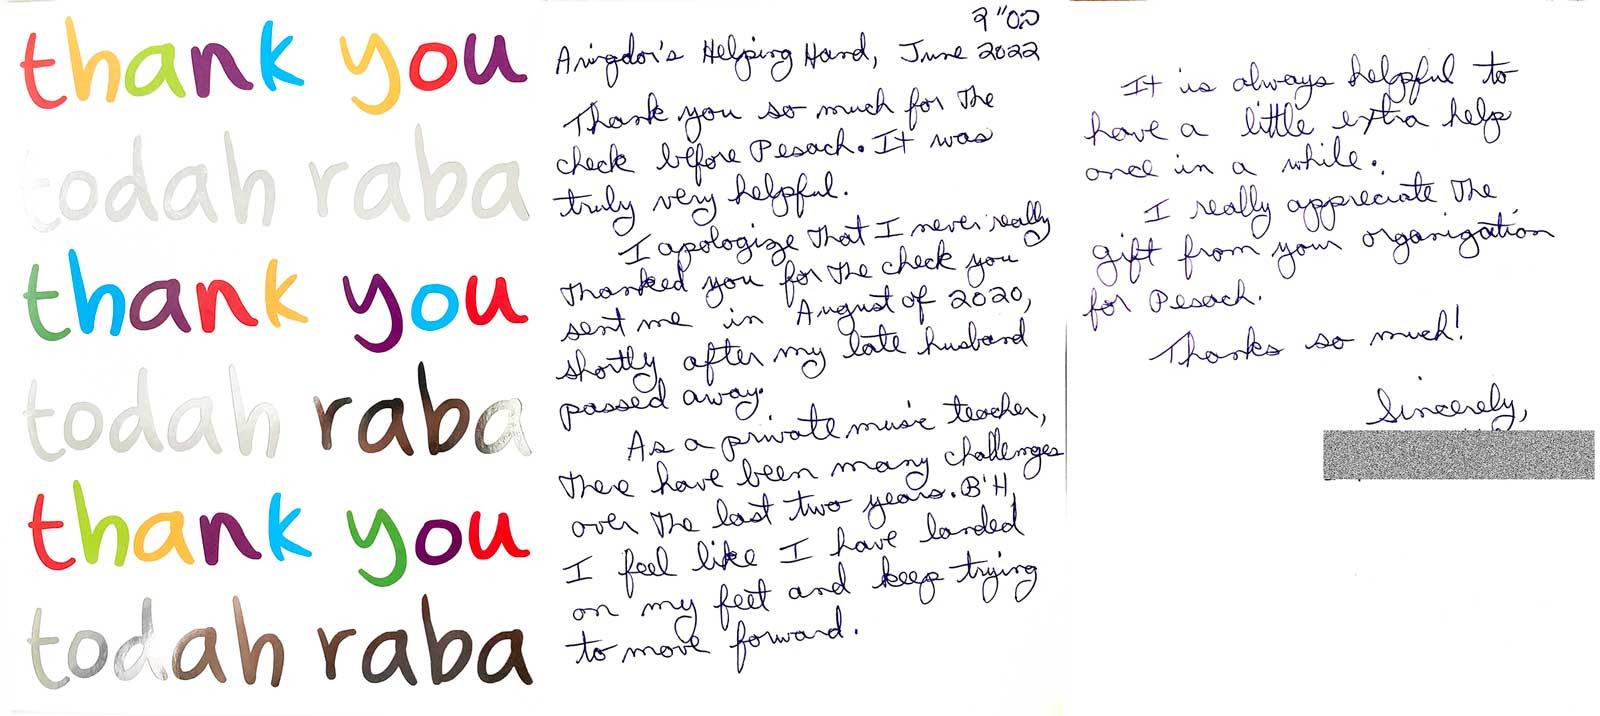 thank you
todah raba
thank you
todah raba
thank you
todah raba
בס"ד
Avigdor's Helping Hand, June 2022
Thank you so much for the
check before Pesach. It was
truly very helpful.
I apologize that I never really
thanked you for the check you
sent me in August of 2020,
shortly after my late husband
passed away.
As a private music teacher,
there have been many challenges
over the last two years. B'H,
I feel like I have landed
on my feet and keep trying
to move forward.
It is always helpful to
have a little extra help
once in a while.
I really appreciate the
gift from your organization
for Pesach.
Thanks so much!
Sincerely,